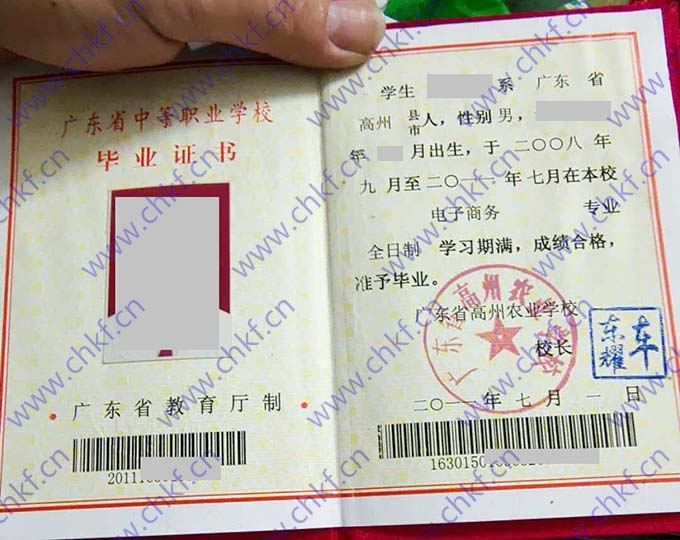 广东省中等职业学校
毕业证书
广东省教育厅制
学生 系 广东 省
高州 县市人，性别 男，
年 月出生，于 二〇〇八 年
九 月至二〇一一年 七月在本校
电子商务 专业
全日制 学习期满，成绩合格，
准予毕业。
广东省高州农业学校
校长
二〇一一年 七 月 一 日
广东省高州农业学校
www.chkf.cn